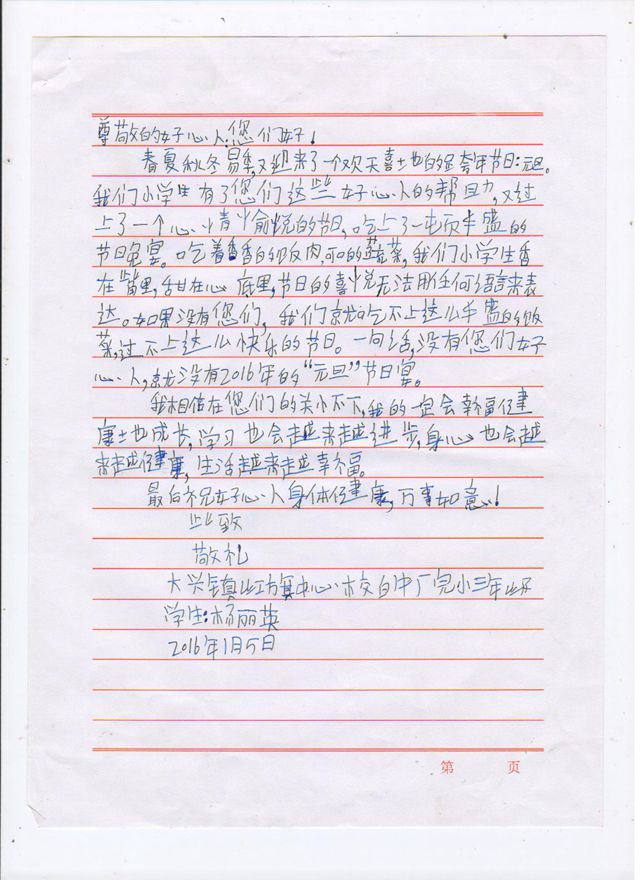 尊敬的好心人:您们好!
春夏秋冬易季,又迎来了一个欢天喜地的跨年节日:元旦。
我们小学生有了您们这些好心人的帮助,又过
上了一个心情愉悦的节日,吃上了一顿丰盛的
节日晚宴。吃着香香的饭肉,可口的蔬菜,我们小学生香
在嘴里,甜在心底里,节日的喜悦无法用任何语言来表
达。如果没有您们,我们就吃不上这么丰盛的饭
菜,过不上这么快乐的节日。一句话,没有您们好
心人,就没有2016年的“元旦”节日宴。
我相信在您们的关怀下,我的一定会幸福健
康地成长,学习也会越来越进步,身心也会越
来越健康,生活越来越幸福。
最后祝好心人身体健康,万事如意!
此致
敬礼
大兴镇中心校白中厂完小三年级
学生:杨丽英
2016年1月5日
第 页